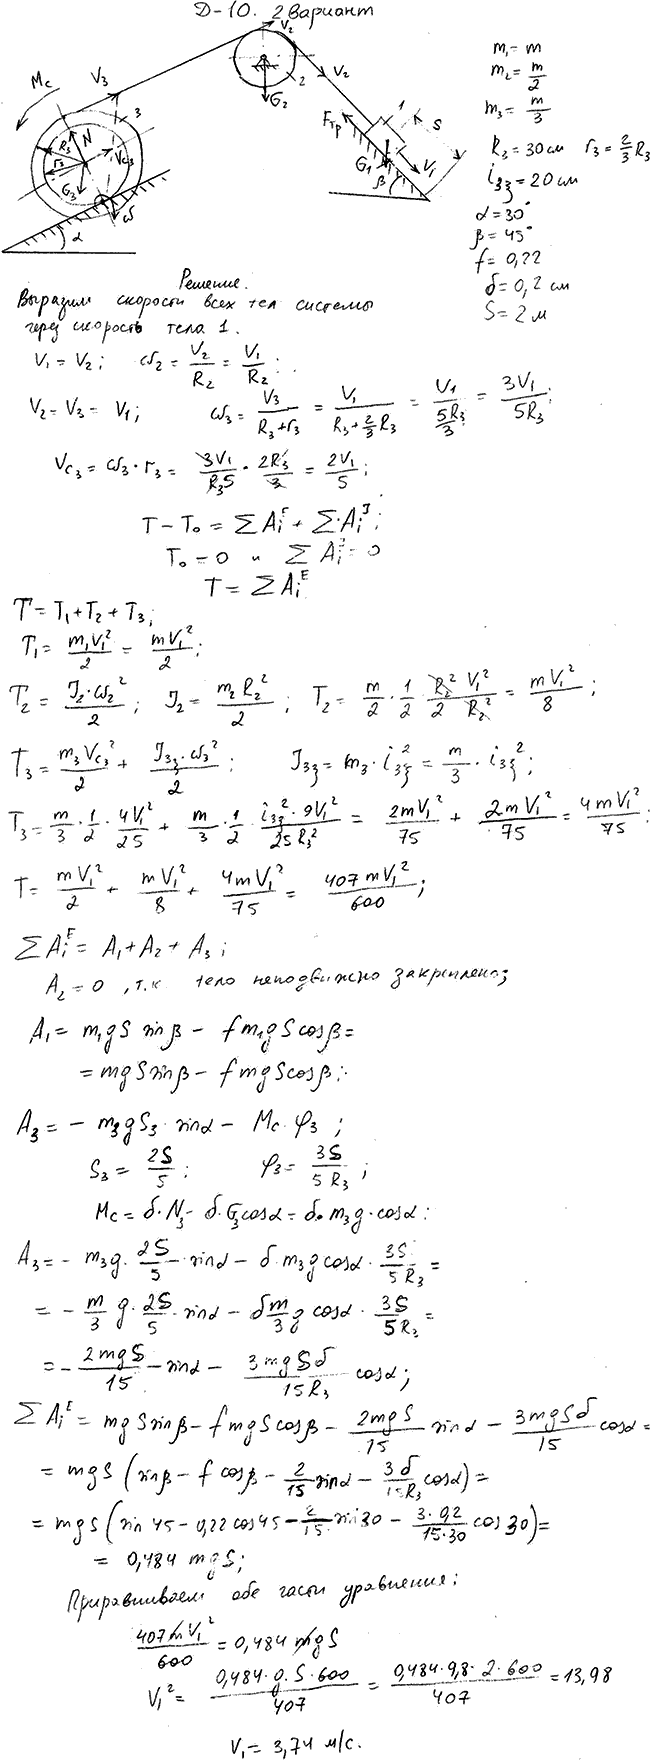 Д-10. 2 вариант
V₂
Mc
V₃
2
V₂
G₂
3
1
S
Fтр
R₃
N
r₃
Vc₃
G₃
ω
α
G₁
V₁
β
m₁ = m
m₂ = m/2
m₃ = m/3
R₃ = 30 см r₃ = 2/3 R₃
i₃ξ = 20 см
α = 30°
β = 45°
f = 0,22
δ = 0,2 см
S = 2 м
Решение.
Выразим скорости всех тел системы
через скорость тела 1.
V₁ = V₂; ω₂ = V₂/R₂ = V₁/R₂;
V₂ = V₃ = V₁; ω₃ = V₃/(R₃+r₃) = V₁/(R₃+2/3 R₃) = V₁/(5R₃/3) = 3V₁/5R₃;
Vc₃ = ω₃·r₃ = 3V₁/R₃5 · 2R₃/3 = 2V₁/5;
T − T₀ = ΣAᵢᴱ + ΣAᵢᴶ;
T₀ = 0 и ΣAᵢᴶ = 0
T = ΣAᵢᴱ
T = T₁ + T₂ + T₃;
T₁ = m₁V₁²/2 = mV₁²/2;
T₂ = J₂·ω₂²/2; J₂ = m₂R₂²/2; T₂ = m/2 · 1/2 · R₂²V₁²/2R₂² = mV₁²/8;
T₃ = m₃Vc₃²/2 + J₃ξ·ω₃²/2; J₃ξ = m₃·i₃ξ² = m/3 · i₃ξ²;
T₃ = m/3 · 1/2 · 4V₁²/25 + m/3 · 1/2 · i₃ξ²·9V₁²/25R₃² = 2mV₁²/75 + 2mV₁²/75 = 4mV₁²/75;
T = mV₁²/2 + mV₁²/8 + 4mV₁²/75 = 407mV₁²/600;
ΣAᵢᴱ = A₁ + A₂ + A₃;
A₂ = 0, т.к тело неподвижно закреплено;
A₁ = m₁gS sinβ − fm₁gS cosβ =
= mgS sinβ − fmgS cosβ;
A₃ = − m₃gS₃·sinα − Mc·φ₃;
S₃ = 2S/5; φ₃ = 3S/5R₃;
Mc = δ·N₃ = δ·G₃cosα = δ·m₃g·cosα;
A₃ = − m₃g·2S/5·sinα − δ·m₃g cosα·3S/5R₃ =
= − m/3 g·2S/5·sinα − δ m/3 g cosα·3S/5R₃ =
= − 2mgS/15·sinα − 3mgSδ/15R₃ cosα;
ΣAᵢᴱ = mgS sinβ − fmgS cosβ − 2mgS/15 sinα − 3mgSδ/15 cosα =
= mgS (sinβ − f cosβ − 2/15 sinα − 3δ/15R₃ cosα) =
= mgS (sin 45 − 0,22 cos 45 − 2/15 sin 30 − 3·0,2/15·30 cos 30) =
= 0,484 mgS;
Приравниваем обе части уравнения:
407mV₁²/600 = 0,484 mgS
V₁² = 0,484·g·S·600/407 = 0,484·9,8·2·600/407 = 13,98
V₁ = 3,74 м/с.